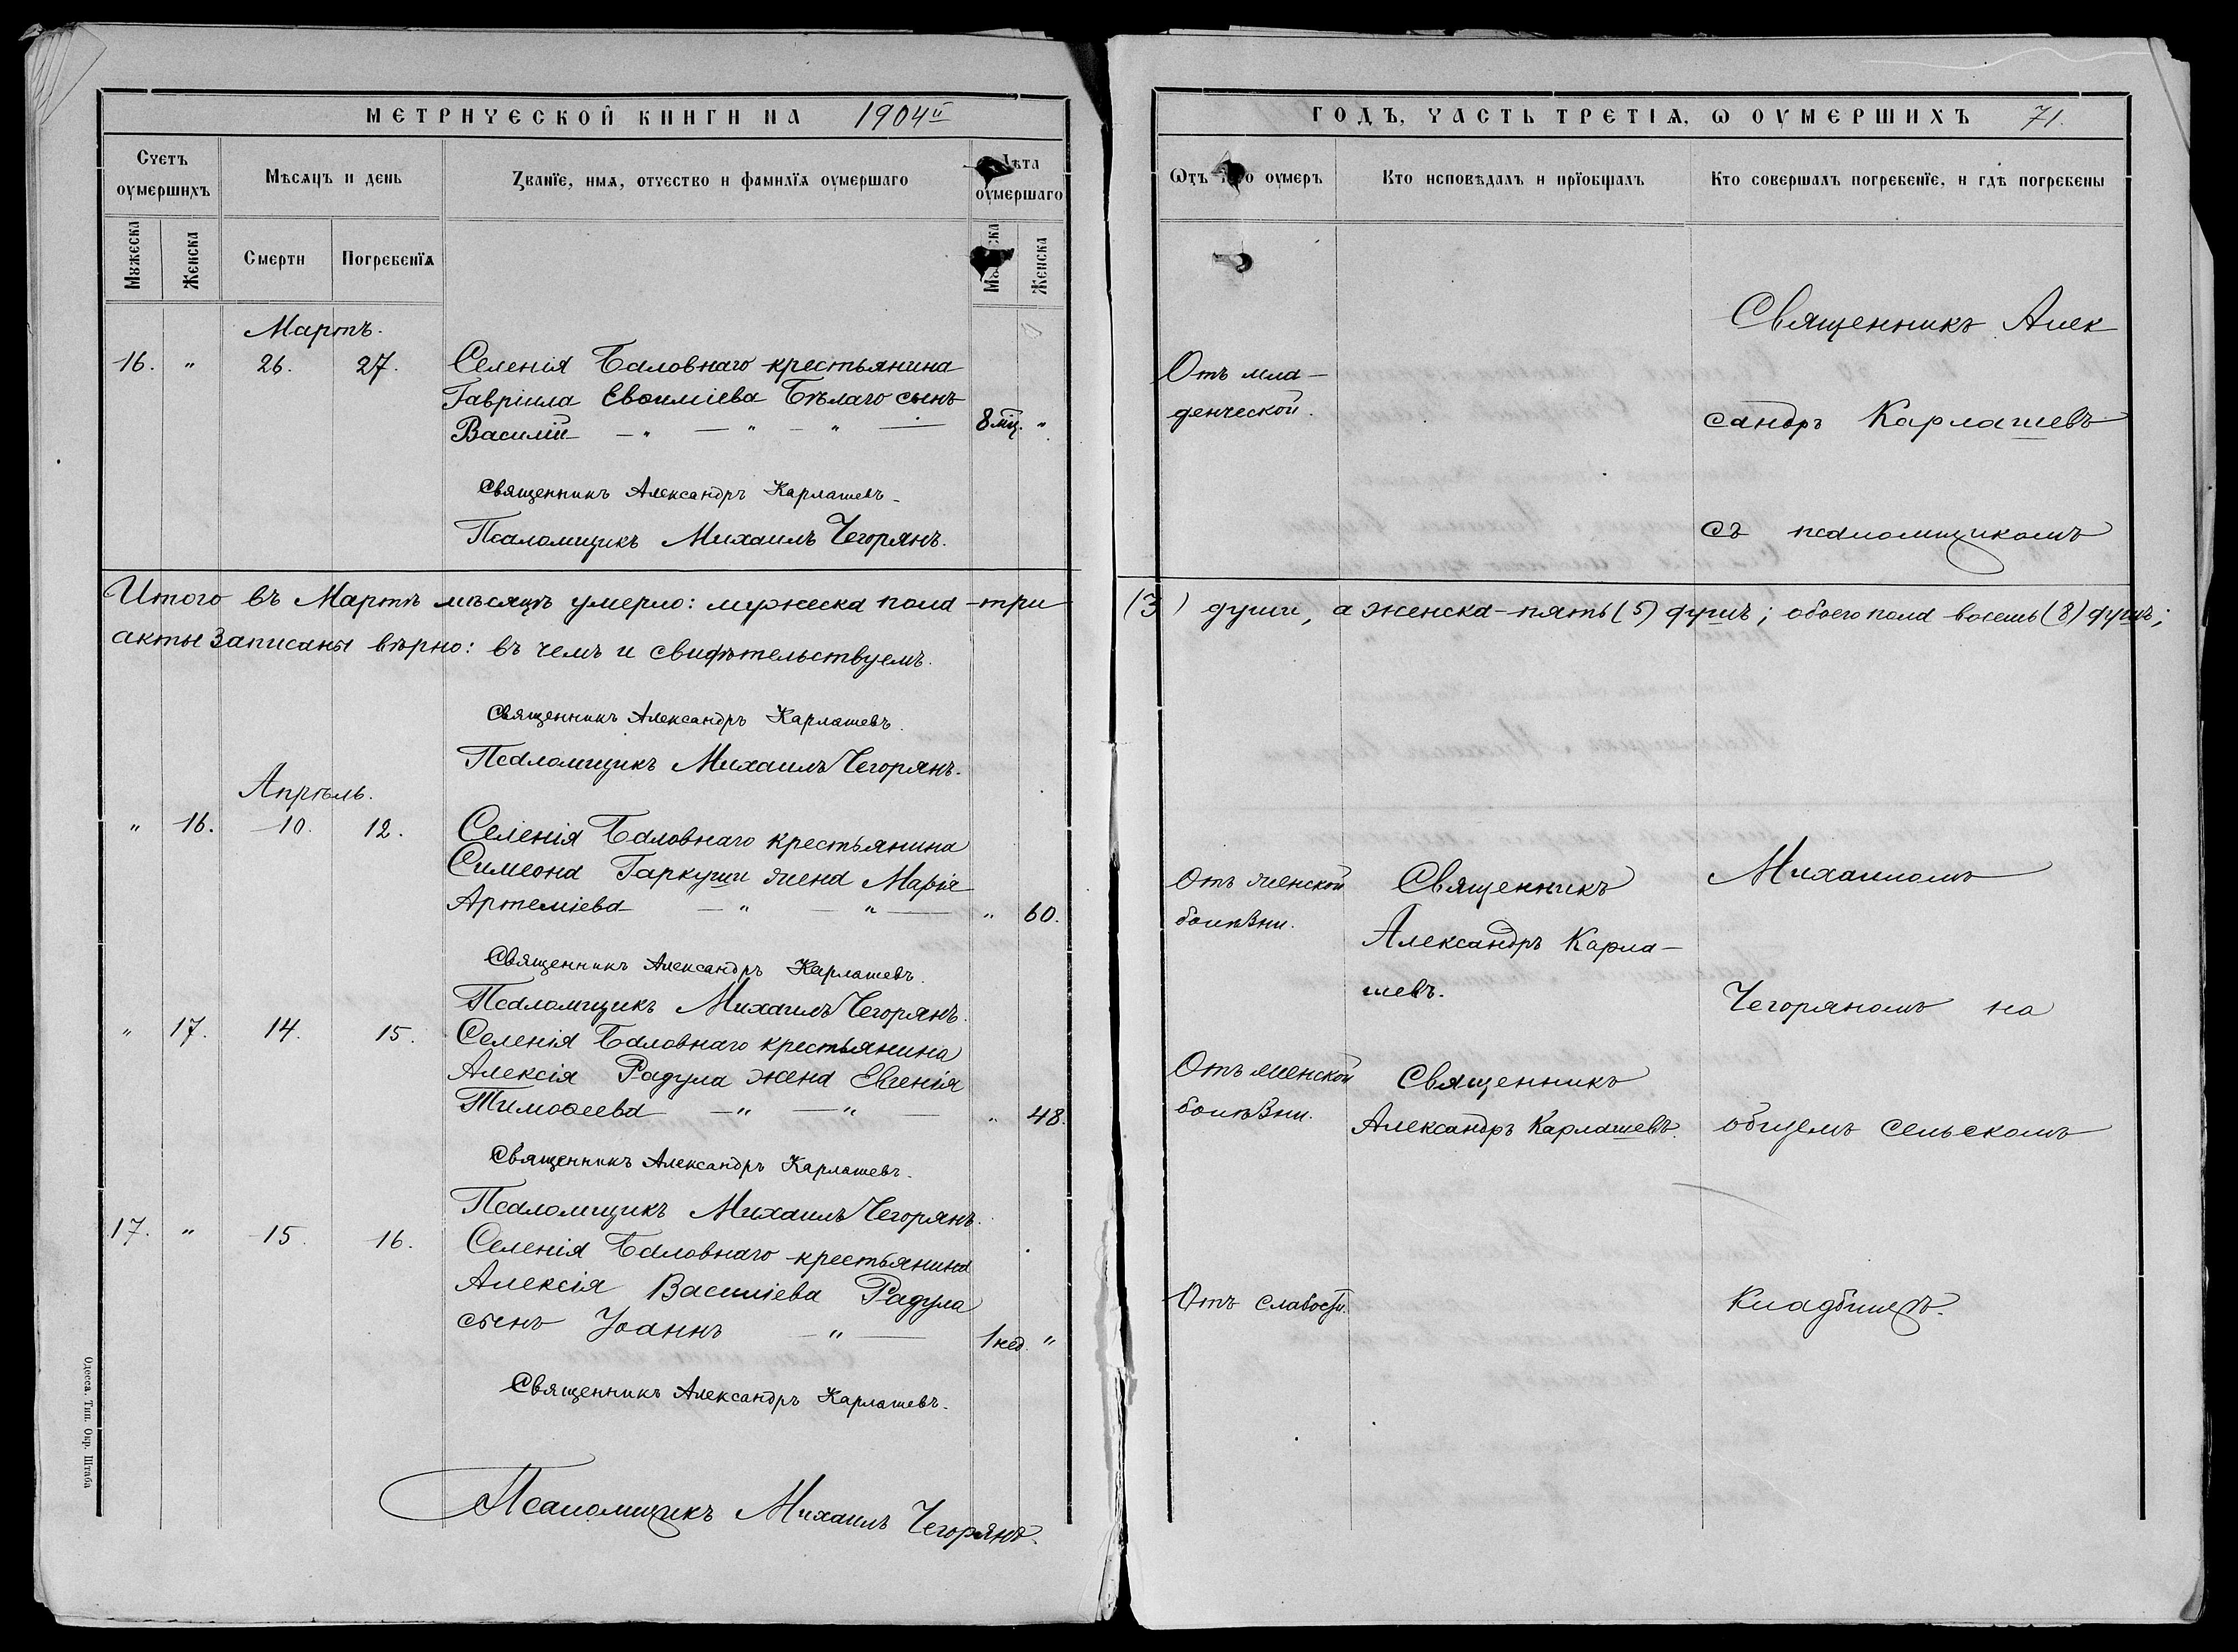 МЕТРИЧЕСКОЙ КНИГИ НА 1904й
Счетъ оумершихъ
Мѣсяцъ и день
Званїе, имѧ, отчество и фамилїѧ оумершаго
Лѣта оумершаго
Мꙋжеска
Женска
Смерти
Погребенїѧ
Женска
Мартъ.
16. " 26. 27. Селенія Баловнаго крестьянина
Гавріила Евѳиміева Бѣлаго сынъ
Василій — " — " — " — 8 мц. "
Священникъ Александръ Карлашевъ.
Псаломщикъ Михаилъ Чегорянъ.
Итого въ Мартѣ мѣсяцѣ умерло: мужеска пола – три
акты записаны вѣрно: въ чемъ и свидѣтельствуемъ.
Священникъ Александръ Карлашевъ.
Псаломщикъ Михаилъ Чегорянъ.
Апрѣль.
" 16. 10. 12. Селенія Баловнаго крестьянина
Симеона Гаркуши жена Марія
Артеміева — " — " — " 60.
Священникъ Александръ Карлашевъ.
Псаломщикъ Михаилъ Чегорянъ.
" 17. 14. 15. Селенія Баловнаго крестьянина
Алексія Радула жена Евгенія
Тимоѳеева — " — " — " 48.
Священникъ Александръ Карлашевъ.
Псаломщикъ Михаилъ Чегорянъ.
17. " 15. 16. Селенія Баловнаго крестьянина
Алексія Василіева Радула
сынъ Іоаннъ — " — 1 нед. "
Священникъ Александръ Карлашевъ.
Псаломщикъ Михаилъ Чегорянъ.
Одесса. Тип. Окр. Штаба
ГОДЪ, ЧАСТЬ ТРЕТІѦ, Ѡ ОУМЕРШИХЪ 71.
Ѿ оумеръ
Кто исповѣдалъ и прїобщалъ
Кто совершалъ погребенїе, и гдѣ погребены
Священникъ Алек
Отъ мла–
денческой.
сандръ Карлашевъ
съ псаломщикомъ
(3) души, а женска – пять (5) душъ; обоего пола восемь (8) душъ;
Михаиломъ
Отъ женской Священникъ
болѣзни.
Александръ Карла–
шевъ.
Чегоряномъ на
Отъ женской Священникъ
болѣзни. Александръ Карлашевъ. общемъ сельскомъ
Отъ слабости. кладбищѣ.